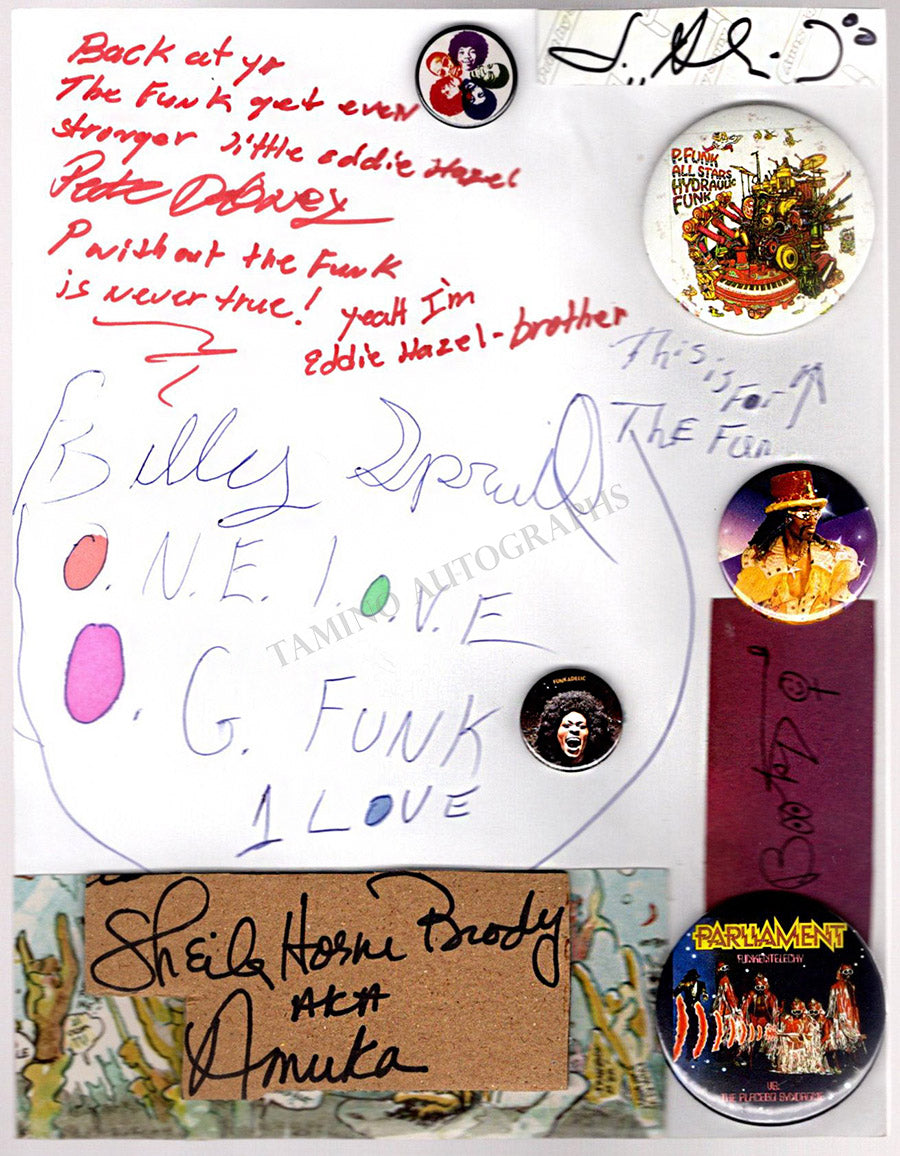 Back at yr
The Funk get even
stronger little eddie Hazel
P without the Funk
is never true!
yeah I'm
Eddie Hazel - brother
P.FUNK
ALL STARS
HYDRAULIC
FUNK
This is For
ThE Fun
Billy Spruill
. N. E. 1 . V. E
. G. FUNK
1 LOVE
FUNKADELIC
TAMINO AUTOGRAPHS
Bootsy
Sheila Horne Brody
AKA
Amuka
PARLIAMENT
FUNKENTELECHY
VS.
THE PLACEBO SYNDROME